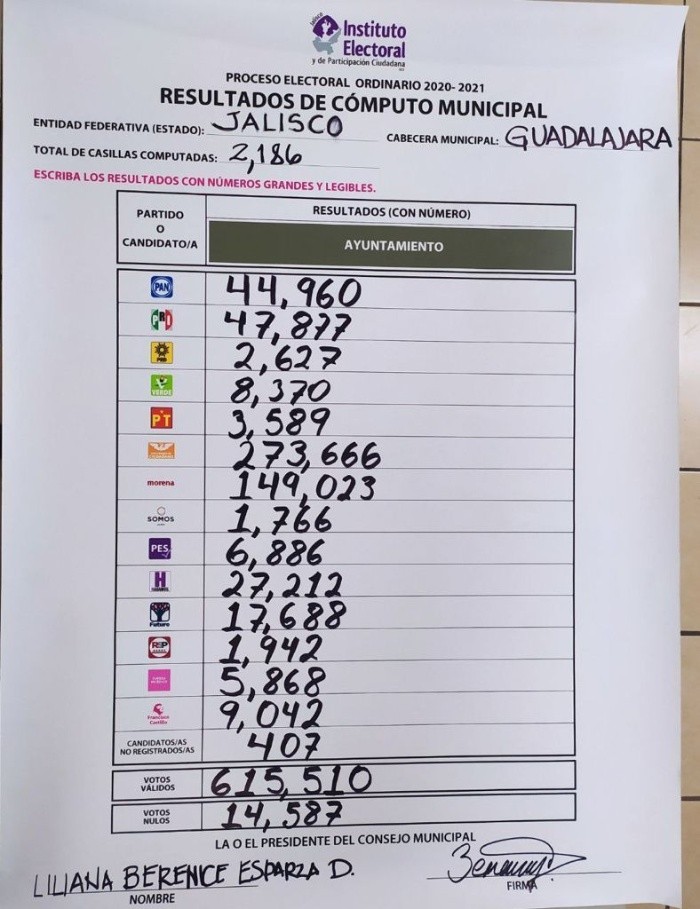 Jalisco
Instituto
Electoral
y de Participación Ciudadana
PROCESO ELECTORAL ORDINARIO 2020-2021
RESULTADOS DE CÓMPUTO MUNICIPAL
ENTIDAD FEDERATIVA (ESTADO): JALISCO CABECERA MUNICIPAL: GUADALAJARA
TOTAL DE CASILLAS COMPUTADAS: 2,186
ESCRIBA LOS RESULTADOS CON NÚMEROS GRANDES Y LEGIBLES.
PARTIDO
O
CANDIDATO/A
RESULTADOS (CON NÚMERO)
AYUNTAMIENTO
PAN 44,960
PRI 47,877
PRD 2,627
VERDE 8,370
PT 3,589
273,666
morena 149,023
SOMOS 1,766
PES 6,886
H 27,212
Futuro 17,688
RSP 1,942
5,868
Francisco
Castillo 9,042
CANDIDATOS/AS
NO REGISTRADOS/AS 407
VOTOS
VÁLIDOS 615,510
VOTOS
NULOS 14,587
LA O EL PRESIDENTE DEL CONSEJO MUNICIPAL
LILIANA BERENICE ESPARZA D.
NOMBRE
FIRMA